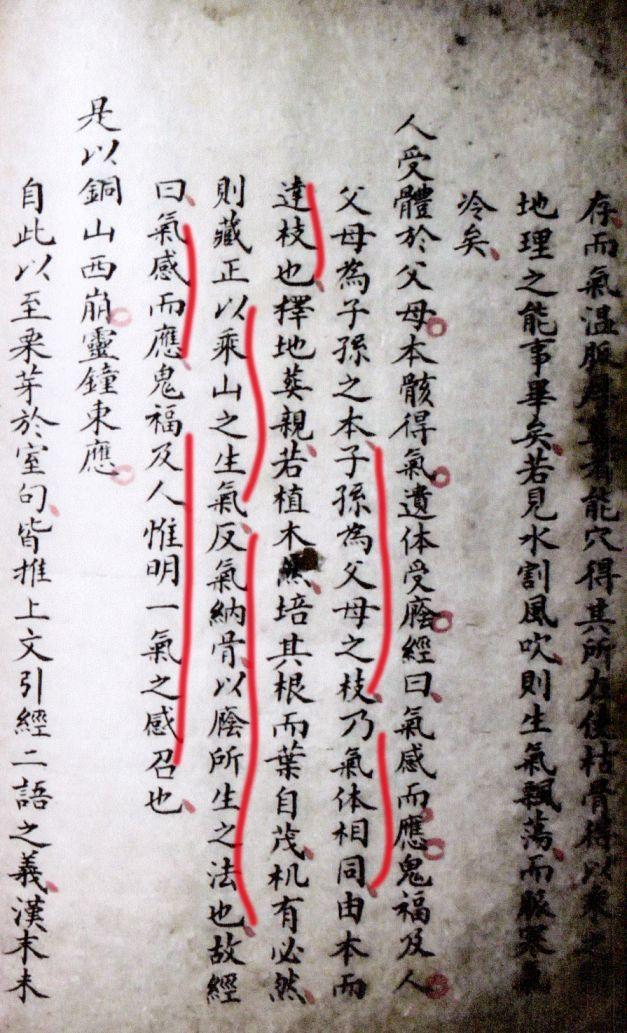 存而氣溫服能穴得其所在使枯骨得以乘
地理之能事畢矣若見水割風吹則生氣飄蕩而服寒氣
冷矣
人受體於父母本骸得氣遺体受廕經曰氣感而應鬼福及人
父母為子孫之本子孫為父母之枝乃氣体相同由本而
達枝也擇地葵親若植木然培其根而葉自茂机有必然
則藏正以乘山之生氣反氣納骨以廕所生之法也故經
曰氣感而應鬼福及人惟明一氣之感召也
是以銅山西崩靈鐘東應
自此以至栗芽於室句皆推上文引經二語之義漢末未